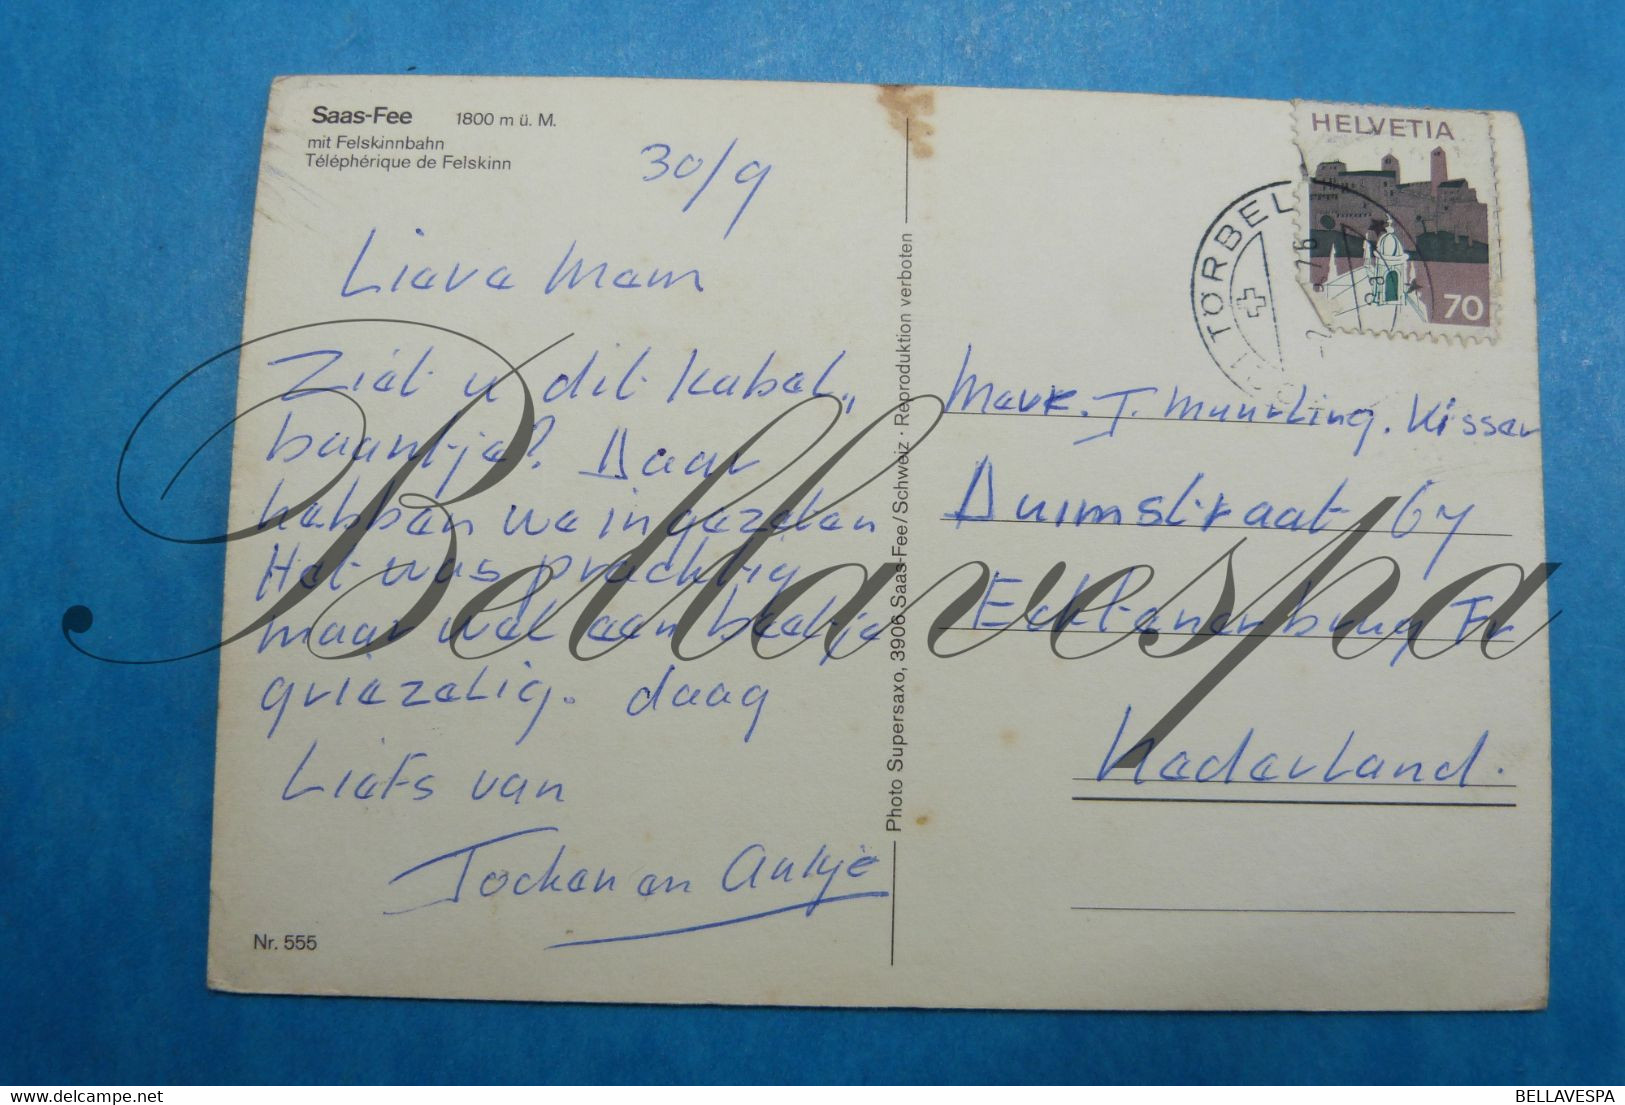 Saas-Fee 1800 m ü. M.
mit Felskinnbahn
Téléphérique de Felskinn
30/9
Lieve Mam
Ziet u dit kabel„
baantje? Daar
hebben we in gezeten
Het was prachtig
maar wel een beetje
griezelig. daag
Liefs van
Jochem en Ankje
Nr. 555
Photo Supersaxo, 3906 Saas-Fee/Schweiz · Reproduktion verboten
HELVETIA
70
TÖRBEL
Mevr. J. Muurling. Visser
Duimstraat 67
Echtenerbrug Fr
Nederland.
Bellavespa
BELLAVESPA